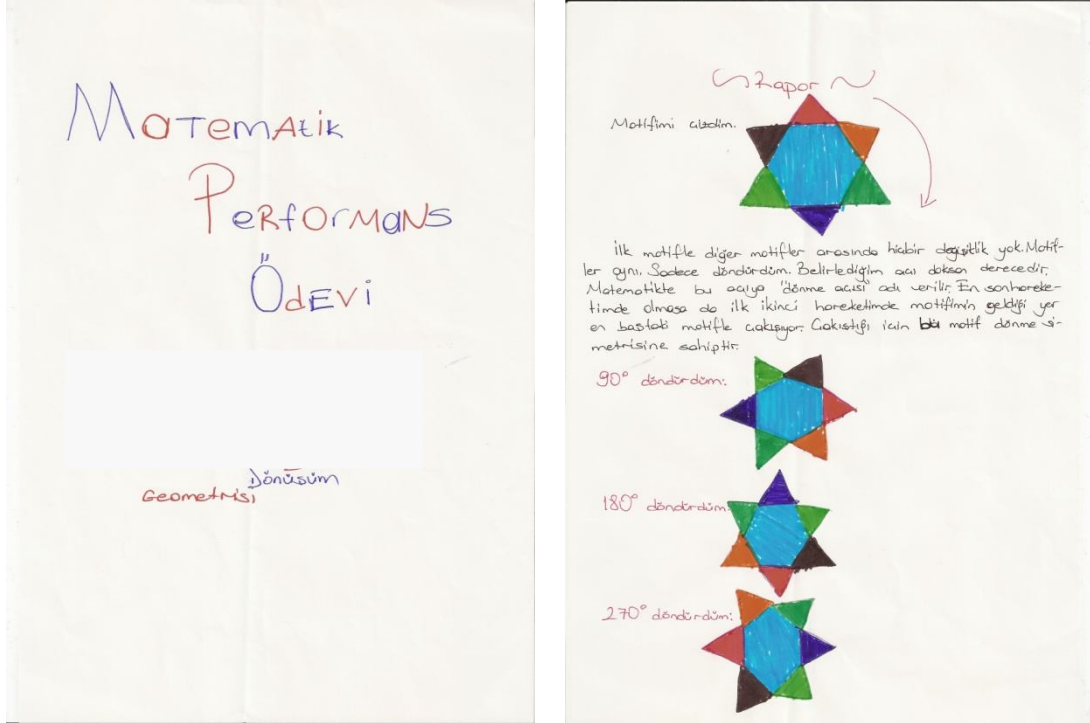 MATEMATİK
PERFORMANS
ÖDEVİ
Dönüşüm
Geometrisi
Rapor
Motifimi çizdim.
İlk motifle diğer motifler arasında hiçbir değişitlik yok. Motif-
ler aynı. Sadece döndürdüm. Belirlediğim açı doksan derecedir.
Matematikte bu açıya "dönme açısı" adı verilir. En sonhareke-
timde olmasa da ilk ikinci hareketimde motifimin geldiği yer
en baştaki motifle çakışıyor. Çakıştığı için bu motif dönme si-
metrisine sahiptir.
90° döndürdüm:
180° döndürdüm:
270° döndürdüm: